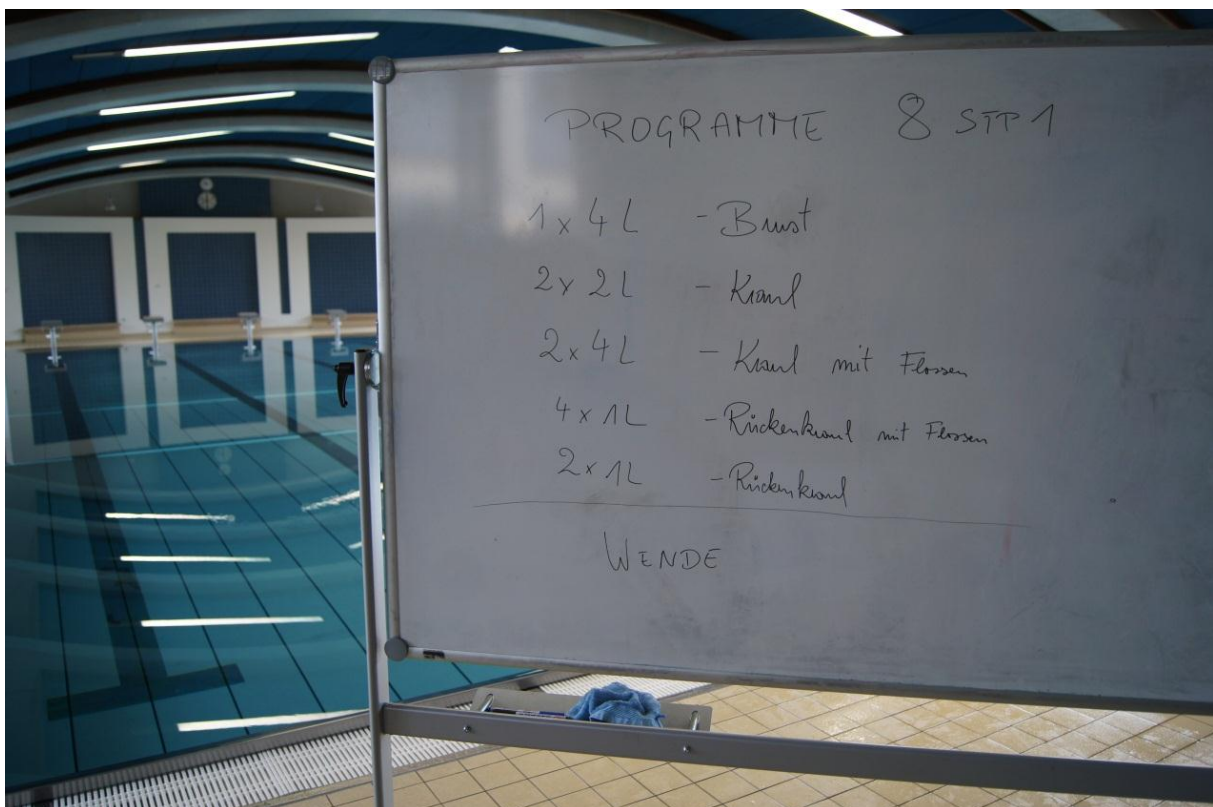 PROGRAMME 8 STP1
1 x 4 L - Brust
2 x 2 L - Kraul
2 x 4 L - Kraul mit Flossen
4 x 1L - Rückenkraul mit Flossen
2 x 1L - Rückenkraul
WENDE